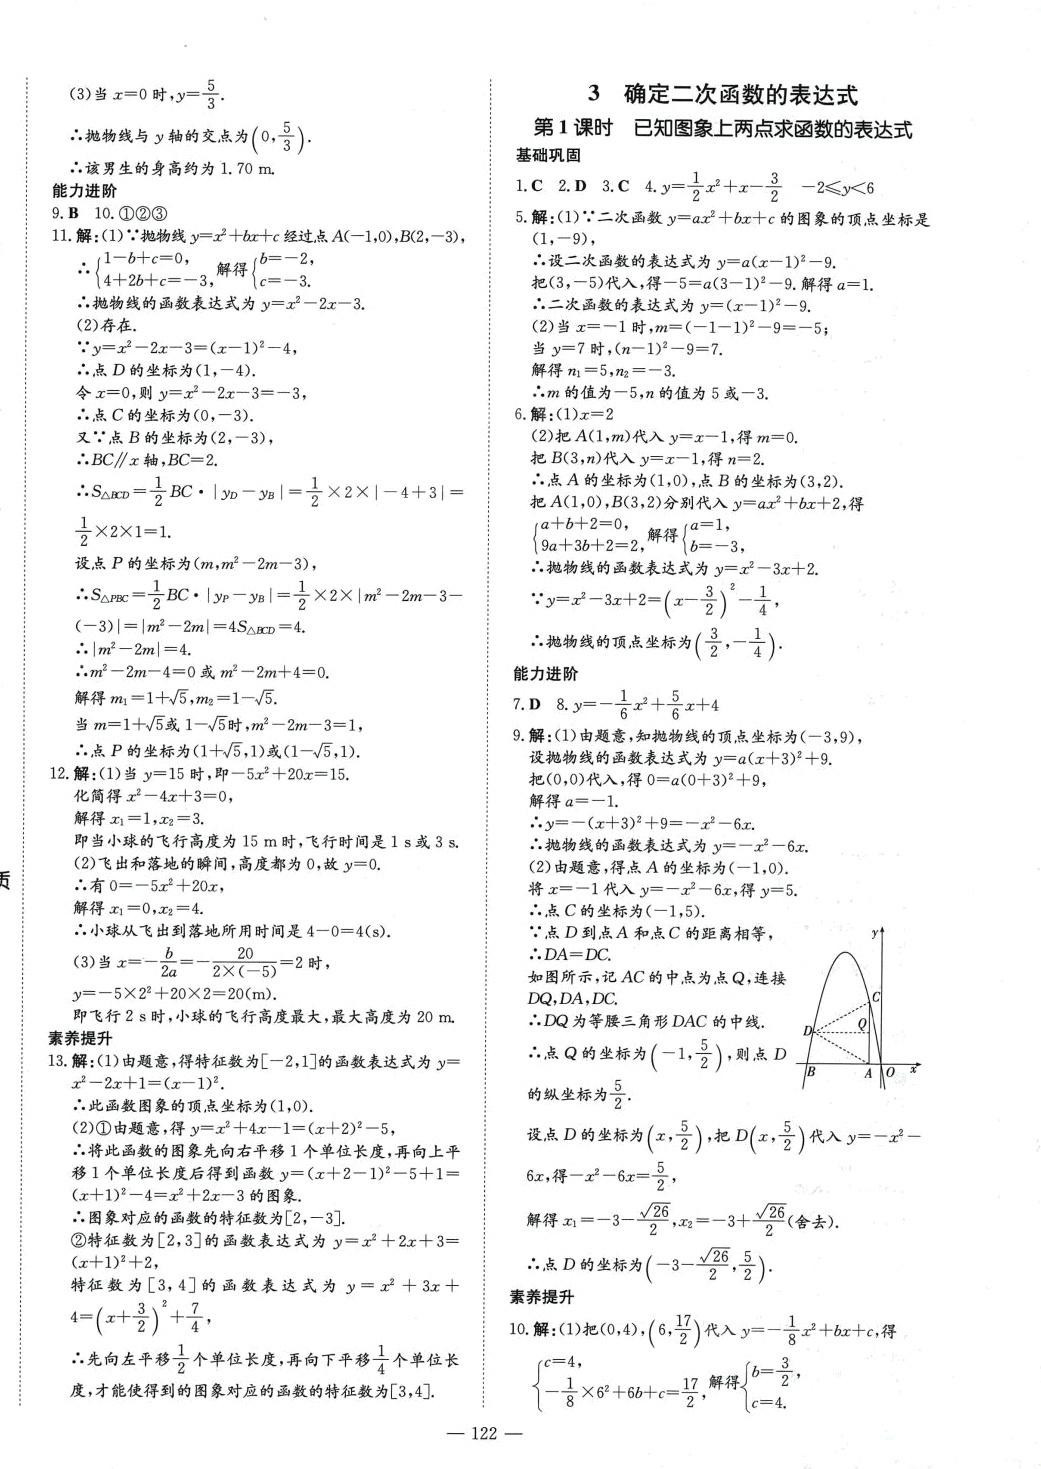 (3)当 x=0 时,y=5/3.
∴抛物线与 y 轴的交点为(0,5/3).
∴该男生的身高约为 1.70 m.
能力进阶
9.B 10.①②③
11.解:(1)∵抛物线 y=x²+bx+c 经过点 A(-1,0),B(2,-3),
∴{1-b+c=0, 4+2b+c=-3, 解得{b=-2, c=-3.
∴抛物线的函数表达式为 y=x²-2x-3.
(2)存在.
∵y=x²-2x-3=(x-1)²-4,
∴点 D 的坐标为(1,-4).
令 x=0,则 y=x²-2x-3=-3,
∴点 C 的坐标为(0,-3).
又∵点 B 的坐标为(2,-3),
∴BC∥x 轴,BC=2.
∴S△BCD=1/2 BC·|yD-yB|=1/2×2×|-4+3|=
1/2×2×1=1.
设点 P 的坐标为(m,m²-2m-3),
∴S△PBC=1/2 BC·|yP-yB|=1/2×2×|m²-2m-3-
(-3)|=|m²-2m|=4S△BCD=4.
∴|m²-2m|=4.
∴m²-2m-4=0 或 m²-2m+4=0.
解得 m₁=1+√5,m₂=1-√5.
当 m=1+√5或 1-√5时,m²-2m-3=1,
∴点 P 的坐标为(1+√5,1)或(1-√5,1).
12.解:(1)当 y=15 时,即-5x²+20x=15.
化简得 x²-4x+3=0,
解得 x₁=1,x₂=3.
即当小球的飞行高度为 15 m 时,飞行时间是 1 s 或 3 s.
(2)飞出和落地的瞬间,高度都为 0,故 y=0.
∴有 0=-5x²+20x,
解得 x₁=0,x₂=4.
∴小球从飞出到落地所用时间是 4-0=4(s).
(3)当 x=-b/2a=-20/(2×(-5))=2 时,
y=-5×2²+20×2=20(m).
即飞行 2 s 时,小球的飞行高度最大,最大高度为 20 m.
素养提升
13.解:(1)由题意,得特征数为[-2,1]的函数表达式为 y=
x²-2x+1=(x-1)².
∴此函数图象的顶点坐标为(1,0).
(2)①由题意,得 y=x²+4x-1=(x+2)²-5,
∴将此函数的图象先向右平移 1 个单位长度,再向上平
移 1 个单位长度后得到函数 y=(x+2-1)²-5+1=
(x+1)²-4=x²+2x-3 的图象.
∴图象对应的函数的特征数为[2,-3].
②特征数为[2,3]的函数表达式为 y=x²+2x+3=
(x+1)²+2,
特征数为[3,4]的函数表达式为 y=x²+3x+
4=(x+3/2)²+7/4,
∴先向左平移1/2个单位长度,再向下平移1/4个单位长
度,才能使得到的图象对应的函数的特征数为[3,4].
3 确定二次函数的表达式
第1课时 已知图象上两点求函数的表达式
基础巩固
1.C 2.D 3.C 4.y=1/2x²+x-3/2 -2⩽y<6
5.解:(1)∵二次函数 y=ax²+bx+c 的图象的顶点坐标是
(1,-9),
∴设二次函数的表达式为 y=a(x-1)²-9.
把(3,-5)代入,得-5=a(3-1)²-9.解得 a=1.
∴二次函数的表达式为 y=(x-1)²-9.
(2)当 x=-1 时,m=(-1-1)²-9=-5;
当 y=7 时,(n-1)²-9=7.
解得 n₁=5,n₂=-3.
∴m 的值为-5,n 的值为 5 或-3.
6.解:(1)x=2
(2)把 A(1,m)代入 y=x-1,得 m=0.
把 B(3,n)代入 y=x-1,得 n=2.
∴点 A 的坐标为(1,0),点 B 的坐标为(3,2).
把 A(1,0),B(3,2)分别代入 y=ax²+bx+2,得
{a+b+2=0, 9a+3b+2=2, 解得{a=1, b=-3,
∴抛物线的函数表达式为 y=x²-3x+2.
∵y=x²-3x+2=(x-3/2)²-1/4,
∴抛物线的顶点坐标为(3/2,-1/4).
能力进阶
7.D 8.y=-1/6x²+5/6x+4
9.解:(1)由题意,知抛物线的顶点坐标为(-3,9),
设抛物线的函数表达式为 y=a(x+3)²+9.
把(0,0)代入,得 0=a(0+3)²+9,
解得 a=-1.
∴y=-(x+3)²+9=-x²-6x.
∴抛物线的函数表达式为 y=-x²-6x.
(2)由题意,得点 A 的坐标为(-1,0).
将 x=-1 代入 y=-x²-6x,得 y=5.
∴点 C 的坐标为(-1,5).
∵点 D 到点 A 和点 C 的距离相等,
∴DA=DC.
如图所示,记 AC 的中点为点 Q,连接
DQ,DA,DC.
∴DQ 为等腰三角形 DAC 的中线.
∴点 Q 的坐标为(-1,5/2),则点 D
的纵坐标为5/2.
y
C
D
Q
B
A
O
x
设点 D 的坐标为(x,5/2),把 D(x,5/2)代入 y=-x²-
6x,得-x²-6x=5/2,
解得 x₁=-3-√26/2,x₂=-3+√26/2(舍去).
∴点 D 的坐标为(-3-√26/2,5/2).
素养提升
10.解:(1)把(0,4),(6,17/2)代入 y=-1/8x²+bx+c,得
{c=4, -1/8×6²+6b+c=17/2, 解得{b=3/2, c=4.
— 122 —
质